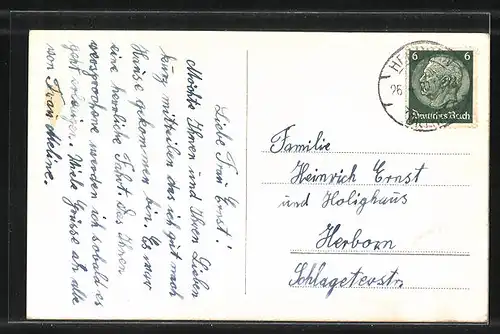 Liebe Frau Ernst!
Möchte Ihnen und Ihren Lieben
kurz mitteilen das ich gut nach
Hause gekommen bin. Es war
eine herrliche Fahrt. Das Ihnen
versprochene werden ich sobald es
geht
Viele Grüsse an alle
von Frau
6 6
Deutsches Reich
Familie
Heinrich Ernst
und Holighaus
Herborn
Schlageterstr